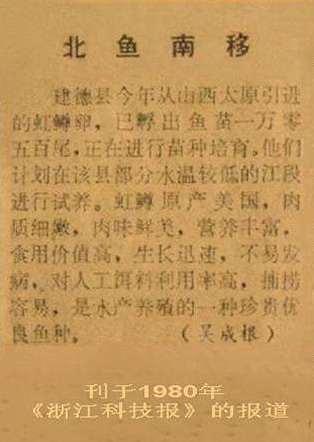 北鱼南移
建德县今年从山西太原引进
的虹鳟卵，已孵出鱼苗一万零
五百尾，正在进行苗种培育。他们
计划在该县部分水温较低的江段
进行试养。虹鳟原产美国，肉
质细嫩，肉味鲜美，营养丰富，
食用价值高，生长迅速，不易发
病，对人工饵料利用率高，捕捞
容易，是水产养殖的一种珍贵优
良鱼种。（吴成根）
刊于1980年
《浙江科技报》的报道